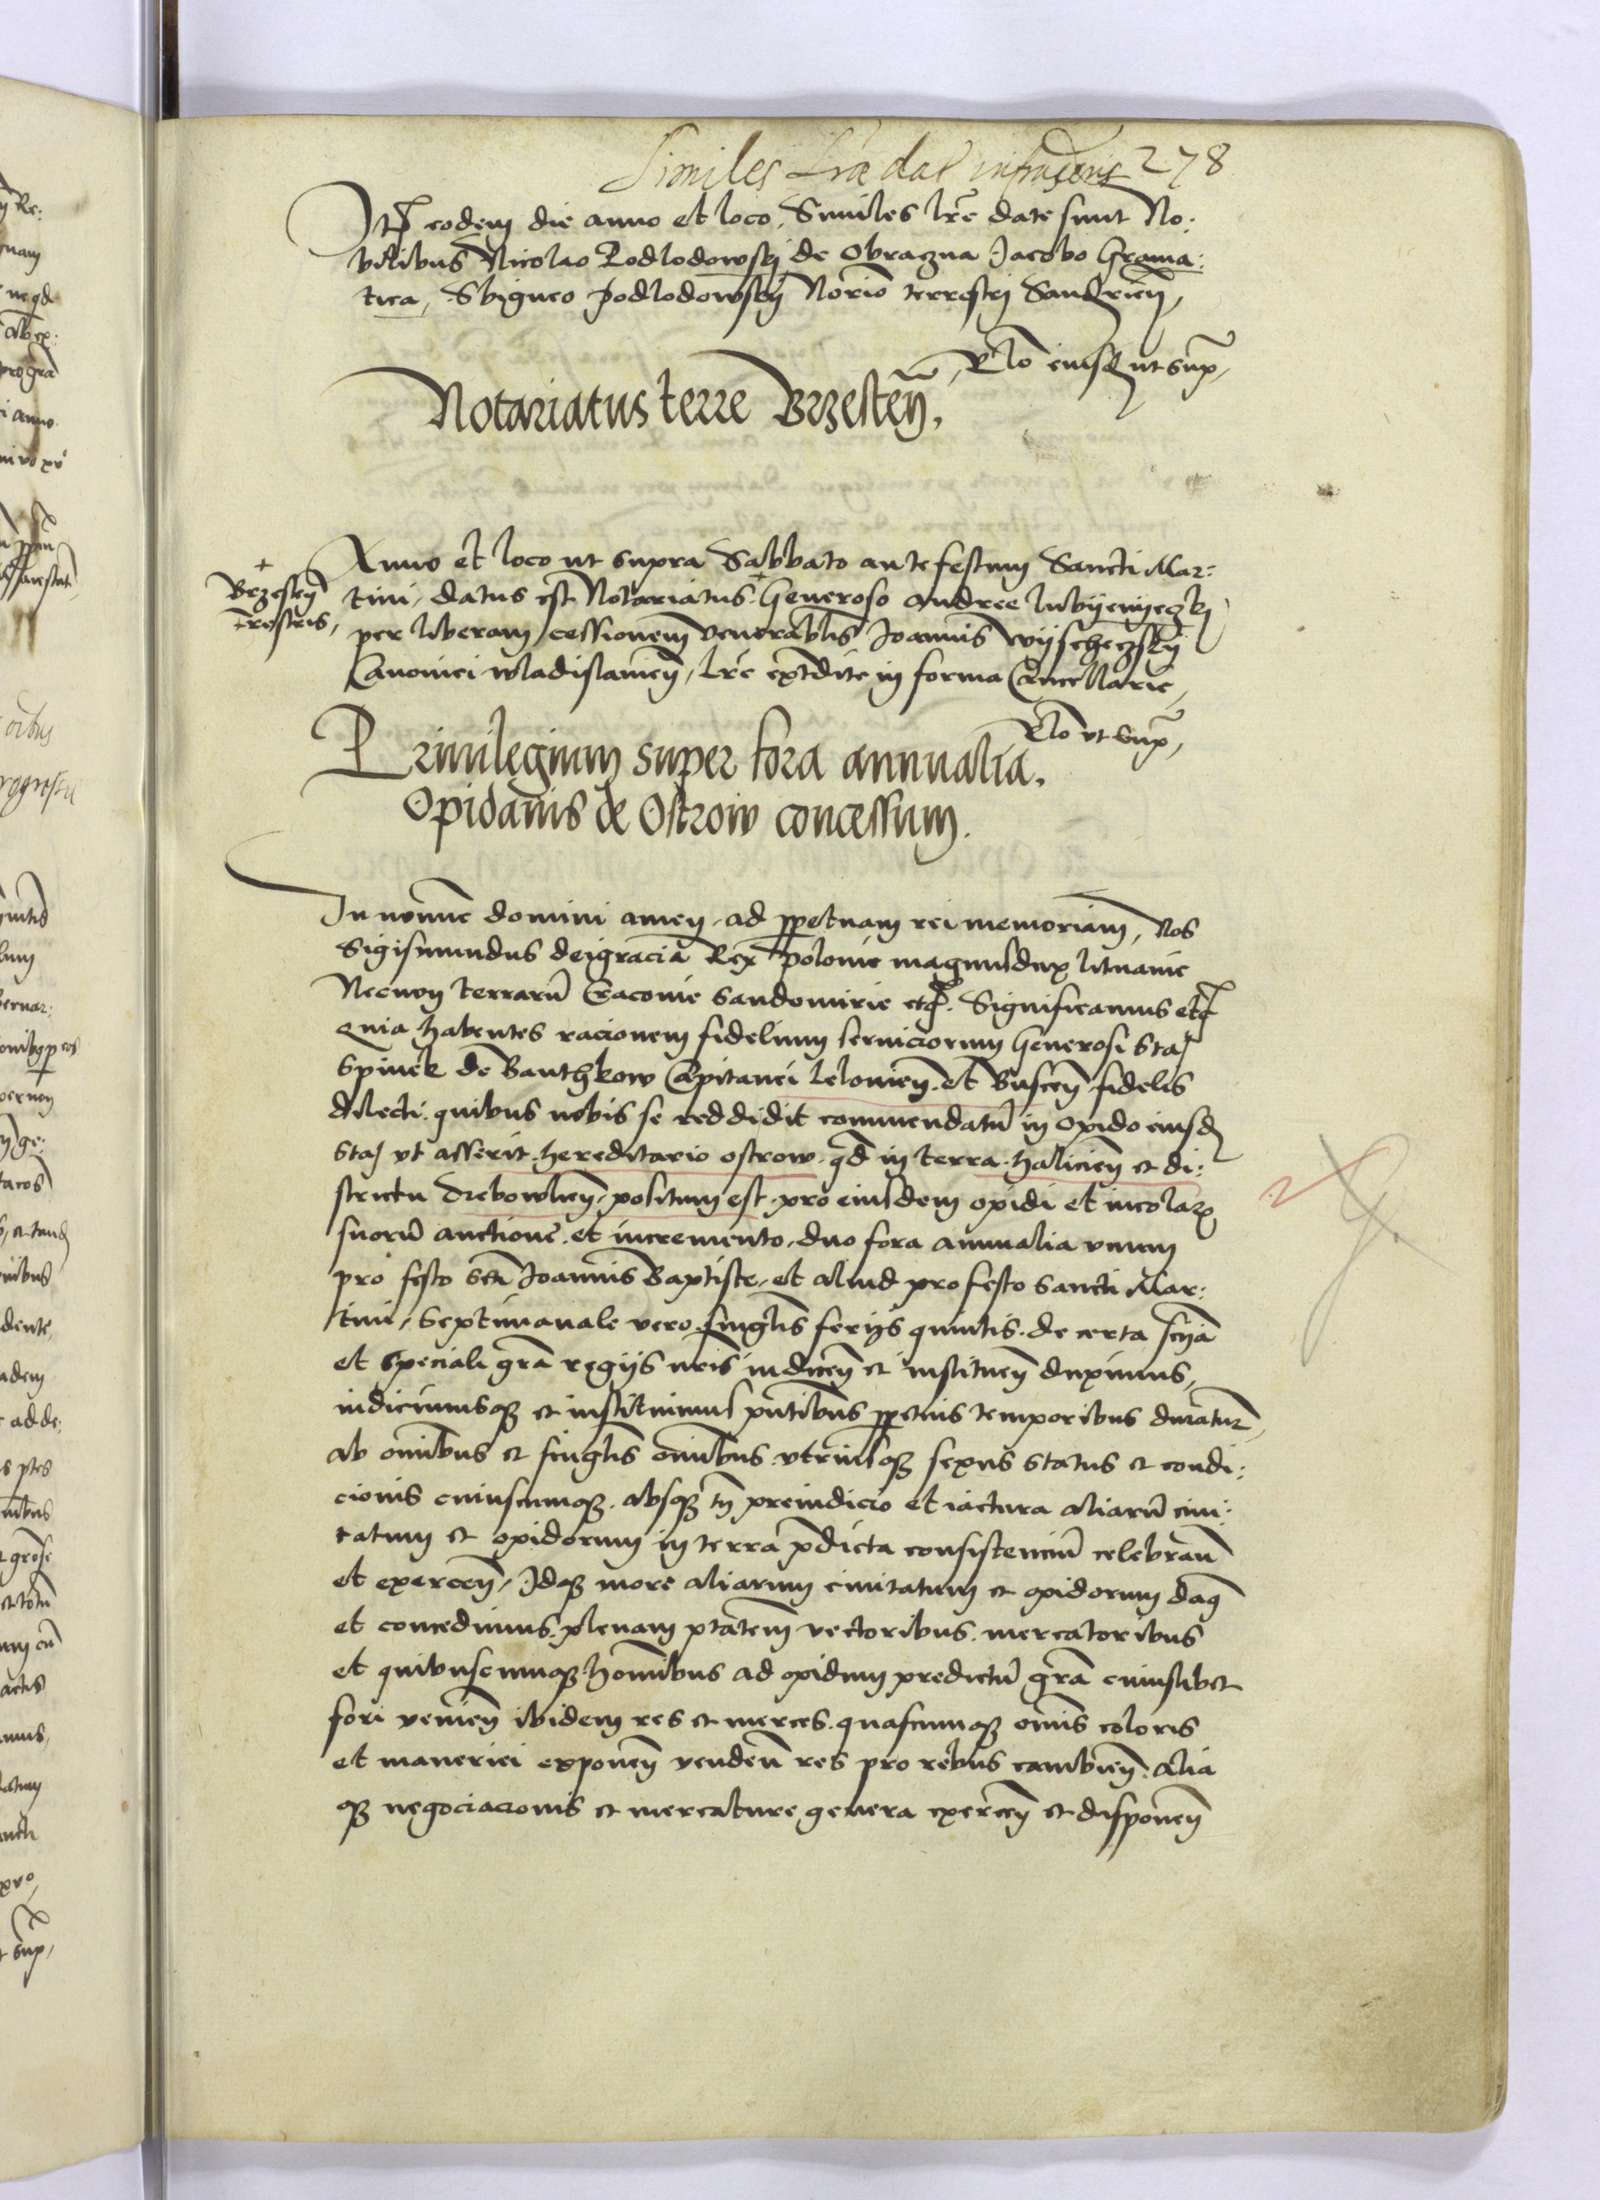 Similes lrae dat infrascriis 278
Itē eodem die anno et loco. Similes lrē date sunt No:
bilibus Nicolao Podlodowskj de Obrazna Jacobo Grama:
tica, Sbigneo podlodowskij Norio terrestrj Sandricn̄,
Rlō eiusdē ut sup̄,
Notariatus terre Brzesten̄.
+
Brzesten̄
trestris,
Anno et loco ut supra Sabbato ante festum Sancti Mar:
tini, datus est Notariatus + Generoso Andree lubijenijeczkj
per liberam cessionem venerablis Joannis wijscheczskij
Canonici wladislauien̄, lrē extradite in forma Cancellarie,
Rlō ut sup̄,
Priuilegium super fora annualia.
Opidanis de Ostrow concessum.
In nomine domini amen. ad ppetuam rei memoriam, Nos
Sigismundus dei gracia Rex polonie magnus dux lituanie
Necnon terrarū Cracouie Sandomirie etc̄. Significamus etc̄
quia habentes racionem fidelium seruiciorum Generosi Sta⸗
Spinek de Banthkow Capitanei lelouien̄. et Buscen̄ fidelis
dilecti. quibus nobis se reddidit commendatū in opido eiusdē
Sta⸗ vt asserit. hereditario ostrow. qd in terra. halicien̄ et di:
strictu Trebowlien̄. positum est. pro eiusdem opidi et incolarꝝ
suorū auctione. et incremento. duo fora annualia vnum
pro festo scti Joannis Baptiste. et aliud pro festo Sancti Mar:
tini, Septimanale vero. singlis ferijs quintis. de certa scia
et speciali grā regijs nris indicen̄ et instituen̄ duximus,
indicimusqꝫ et instituimus pntibus ppetuis temporibus duratur̄,
ab omibus et singlis omibus vtriusqꝫ sexus status et condi:
cionis cuiuscumqꝫ. absqꝫ tn̄ preiudicio et iactura aliarū ciui:
tatum et opidorum in terra pdicta consistenciū celebran̄
et exercen̄, Idqꝫ more aliarum ciuitatum et opidorum dan̄
et concedimus. plenam ptatem vectoribus. mercatoribus
et quibuscumqꝫ hominibus ad opidum predictū grā cuiuslibet
fori venien̄ ibidem res et merces. quascumqꝫ omis coloris
et maneriei exponen̄ venden̄ res pro rebus cambien̄. alia
qꝫ negociacionis et mercature genera exercen̄ et disponen̄